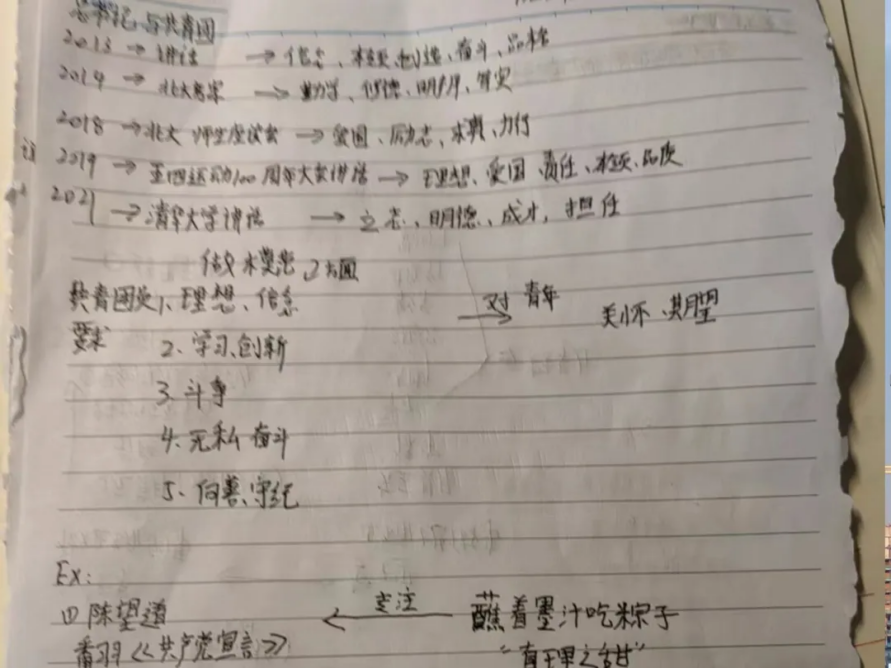 总书记与共青团
2013 → 讲话 → 信念、本领、创造、奋斗、品格
2014 → 北大 → 勤学、修德、明辨、笃实
2018 → 北大 师生座谈会 → 爱国、励志、求真、力行
2019 → 五四运动100周年大会讲话 → 理想、爱国、责任、本领、品质
2021 → 清华大学讲话 → 立志、明德、成才, 担任
做 方面
共青团员 1、理想、信念 → 对青年 关怀、期望
要求 2、学习、创新
3、斗争
4、无私奋斗
5、向善、守纪
Ex:
① 陈望道 ← 专注 蘸着墨汁吃粽子
翻羽《共产党宣言》 "真理之甜"